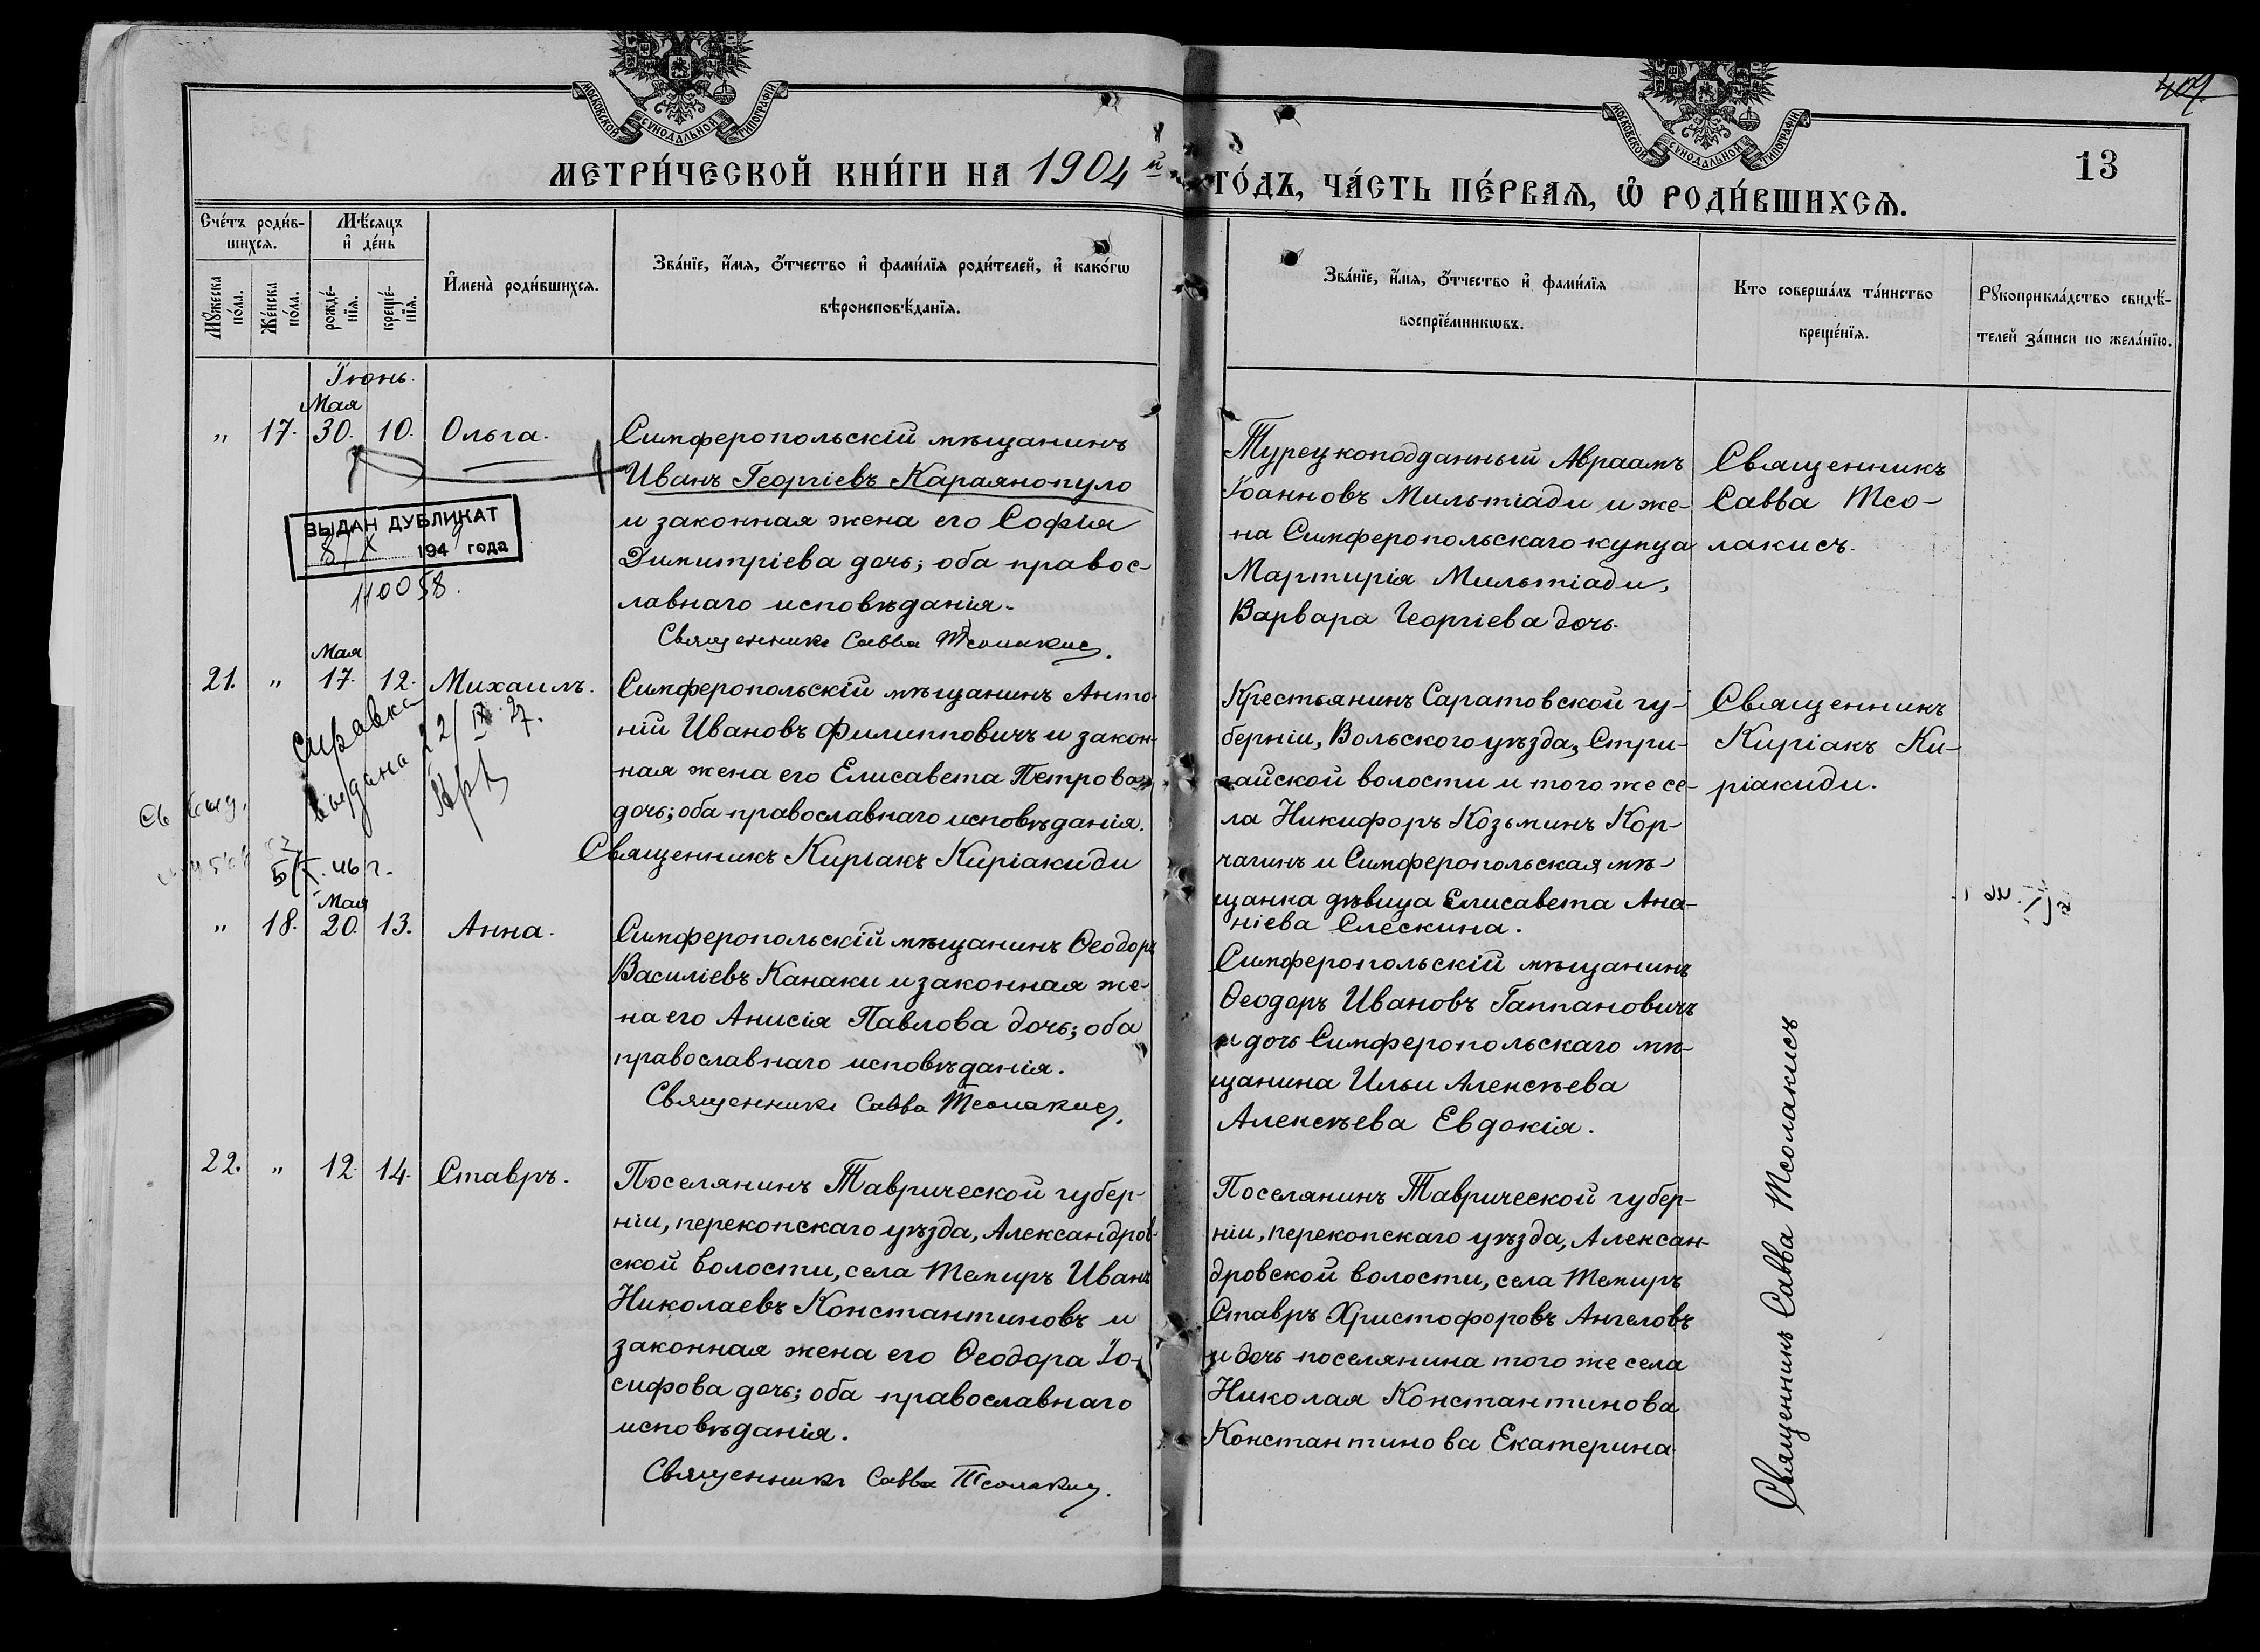 МОСКОВСКОЙ СѴНОДАЛЬНОЙ ТИПОГРАФІИ
МОСКОВСКОЙ СѴНОДАЛЬНОЙ ТИПОГРАФІИ
409
13
МЕТРИ́ЧЕСКОЙ КНИ́ГИ НА 1904 й ГО́ДЪ, ЧА́СТЬ ПЕ́РВАѦ, Ѡ҆ РОДИ́ВШИХСѦ.
Сче́тъ роди́в-
шихсѧ.
Мꙋ́жеска
по́ла.
Же́нска
по́ла.
Мѣ́сѧцъ
и҆ де́нь
рожде́-
нїѧ.
креще́-
нїѧ.
И҆мена̀ роди́вшихсѧ.
Зва́нїе, и҆́мѧ, ѻ҆́тчество и҆ фами́лїѧ роди́телей, и҆ како́гѡ
вѣроисповѣ́данїѧ.
Зва́нїе, и҆́мѧ, ѻ҆́тчество и҆ фами́лїѧ
воспрїе́мникѡвъ.
Кто соверша́лъ та́инство
креще́нїѧ.
Рꙋкоприкла́дство свидѣ́-
телей за́писи по жела́нїю.
Іюнь.
Мая
" 17. 30. 10. Ольга.
Симферопольскій мѣщанинъ
Иванъ Георгіевъ Караянопуло
и законная жена его Софія
Димитріева дочь; оба правос-
лавнаго исповѣданія.
Священникъ Савва Тсолакис.
Турецкоподданный Авраамъ
Іоанновъ Мильтіади и же-
на Симферопольскаго купца
Мартирія Мильтіади,
Варвара Георгіева дочь.
Священникъ
Савва Тсо-
лакисъ.
ВЫДАН ДУБЛИКАТ
8/X 1949 года
110058.
Мая
21. " 17. 12. Михаилъ.
Симферопольскій мѣщанинъ Анто-
ній Ивановъ Филипповичъ и закон-
ная жена его Елисавета Петрова
дочь; оба православнаго исповѣданія.
Священникъ Киріакъ Киріакиди
Крестьянинъ Саратовской гу-
берніи, Вольского уѣзда, Стри-
гайской волости и того же се-
ла Никифоръ Козьминъ Кор-
чагинъ и Симферопольская мѣ-
щанка дѣвица Елисавета Ана-
ніева Слескина.
Священникъ
Киріакъ Ки-
ріакиди.
справка
выдана 22/IX 27.
Св выд.
5/X. 46 г.
Мая
" 18. 20. 13. Анна.
Симферопольскій мѣщанинъ Ѳеодоръ
Василіевъ Канаки и законная же-
на его Анисія Павлова дочь; оба
православнаго исповѣданія.
Священникъ Савва Тсолакис.
Симферопольскій мѣщанинъ
Ѳеодоръ Ивановъ Гаппановичъ
и дочь Симферопольскаго мѣ-
щанина Ильи Алексѣева
Алексѣева Евдокія.
22. " 12. 14. Ставръ.
Поселянинъ Таврической губер-
ніи, перекопскаго уѣзда, Александров-
ской волости, села Темиръ Иванъ
Николаевъ Константиновъ и
законная жена его Ѳеодора Іо-
сифова дочь; оба православнаго
исповѣданія.
Священникъ Савва Тсолакис.
Поселянинъ Таврической губер-
ніи, перекопскаго уѣзда, Алексан-
дровской волости, села Темиръ
Ставръ Христофоровъ Ангеловъ
и дочь поселянина того же села
Николая Константинова
Константинова Екатерина.
Священникъ Савва Тсолакисъ